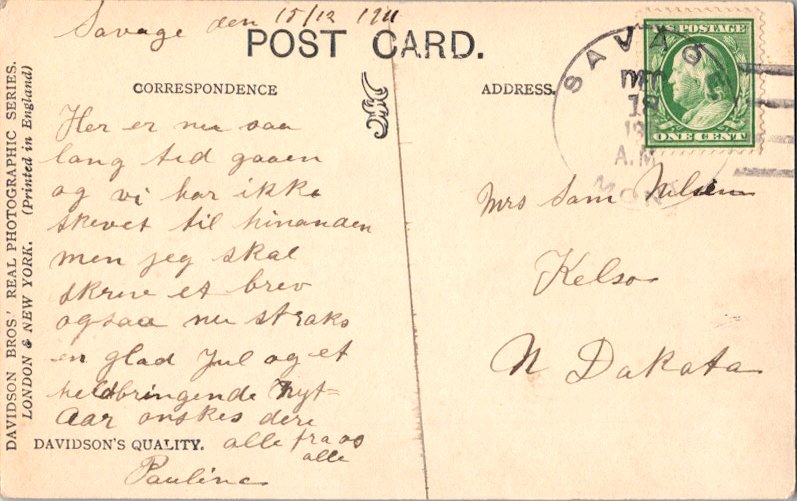 Savage den 15/12 1911
POST CARD.
CORRESPONDENCE
ADDRESS.
DAVIDSON BROS' REAL PHOTOGRAPHIC SERIES.
LONDON & NEW YORK. (Printed in England)
Her er nu saa
lang tid gaaen
og vi har ikke
skevet til hinanden
men jeg skal
skrive et brev
ogsaa nu straks
en glad Jul og et
heldbringende Nyt-
Aar onskes dere
alle fra os
alle
Pauline
DAVIDSON'S QUALITY.
U.S. POSTAGE
ONE CENT
SAVAGE
18
A.M
MONT
Mrs Sam
Kelso
N Dakota